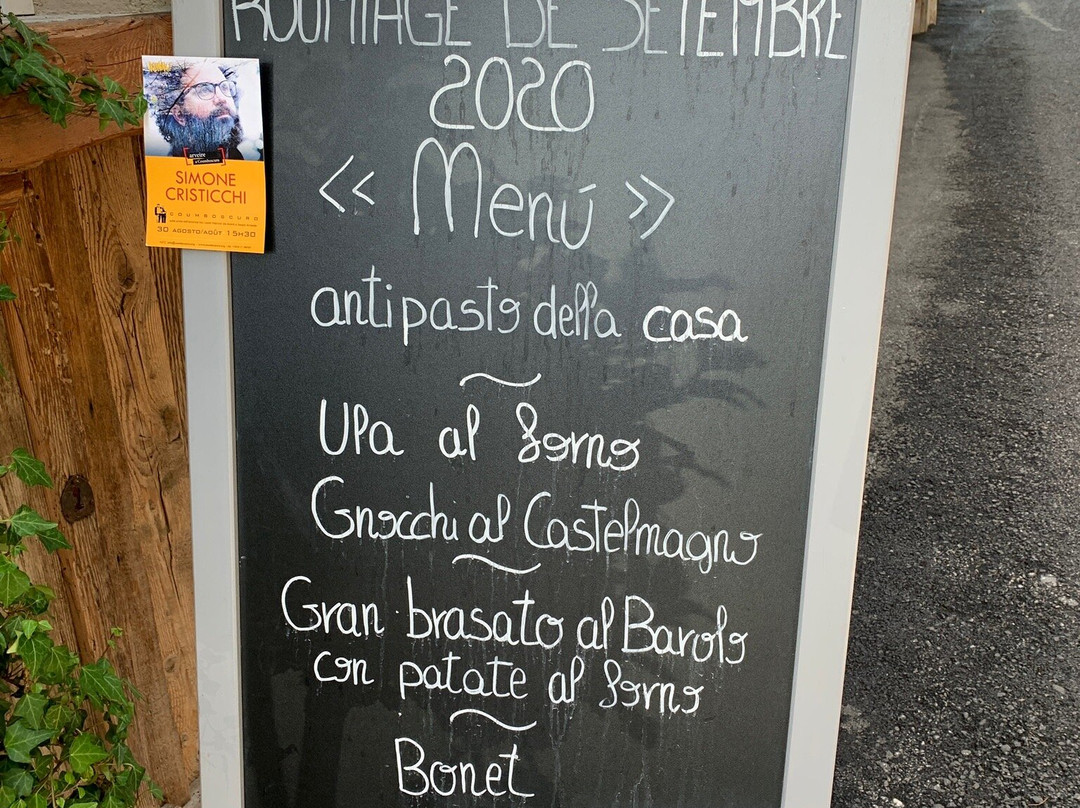 ROUMIAGE DE SETEMBRE
2020
<< Menú >>
antipasto della casa
Ula al forno
Gnocchi al Castelmagno
Gran brasato al Barolo
con patate al forno
Bonet
SIMONE
CRISTICCHI
COUMBOSCURO
30 AGOSTO/AOÛT 15H30